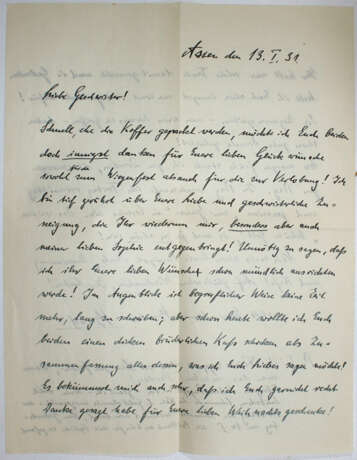 Assen den 13. I. 31
Liebe Geschwister!
Schnell, ehe der Koffer gepackt werden, möchte ich Euch beiden
doch innigst danken für Euere lieben Glückwünsche
sowohl für die zum Wiegenfest als auch für die zur Verlobung! Ich
bin tief gerührt über Euere Liebe und geschwisterliche Zu-
neigung, die Ihr wiederum mir, besonders aber auch
meiner lieben Sophie entgegenbringt! Unnötig zu sagen, daß
ich ihr Euere lieben Wünsche schon mündlich ausrichten
werde! Im Augenblick ist begreiflicher Weise keine Zeit
mehr, lang zu schreiben; aber schon heute wollte ich Euch
beiden einen dicken brüderlichen Kuß schicken als Zu-
sammenfassung alles dessen, was ich Euch liebes sagen möchte!
Es bekümmert mich auch sehr, daß ich Euch garnicht recht
Danke gesagt habe für Euere lieben Weihnachtsgeschenke!